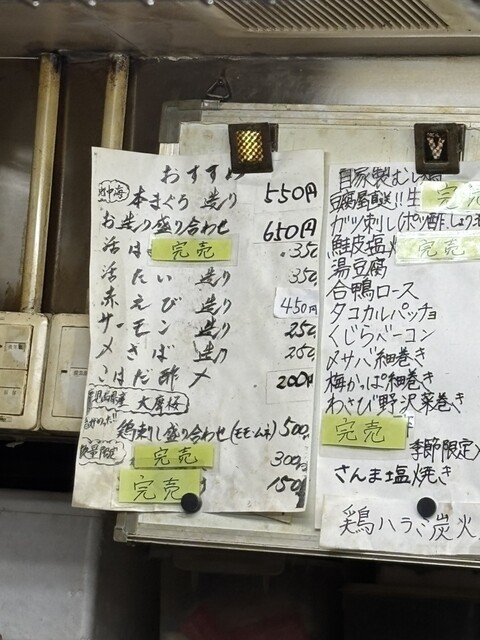 おすすめ
地中海 本まぐろ 造り 550円
お造り盛り合わせ 650円
活は 完売 350
活たい 造り 350
赤えび 造り 450円
サーモン 造り 250
〆さば 造り 250
こはだ酢〆 200円
鹿児島県産 大摩桜
鶏刺し盛り合わせ(モモ・ムネ) 500
数量限定 完売 300円
完売 150
自家製むし鶏
豆腐屋直送!!生 完売
ガッツ刺し(ポン酢、しょうゆ
鮭皮塩 完売
湯豆腐
合鴨ロース
タコカルパッチョ
くじらベーコン
〆サバ細巻き
梅かっぱ細巻き
わさび野沢菜巻き
完売
季節限定〉
さんま塩焼き
鶏ハラミ炭火